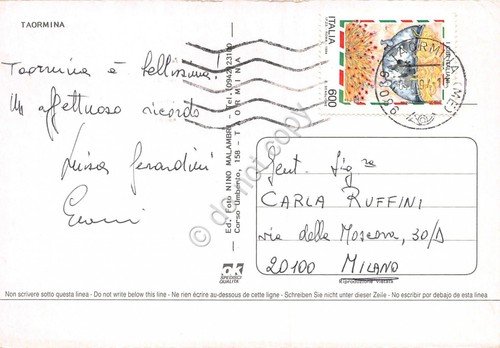 TAORMINA
Taormina è bellissima!
Un affettuoso ricordo
Luisa Gerardini
Ed. Foto NINO MALAMBRI - Tel. (0942) 23100
Corso Umberto, 159 - TAORMINA
ITALIA
600
TAORMINA (ME)
98039
Gent. Sig.ra
CARLA RUFFINI
via della Moscova, 30/A
20100 MILANO
Riproduzione vietata
QUALITÀ
Non scrivere sotto questa linea - Do not write below this line - Ne rien écrire au-dessous de cette ligne - Schreiben Sie nicht unter dieser Zeile - No escribir por debajo de esta linea
do not copy